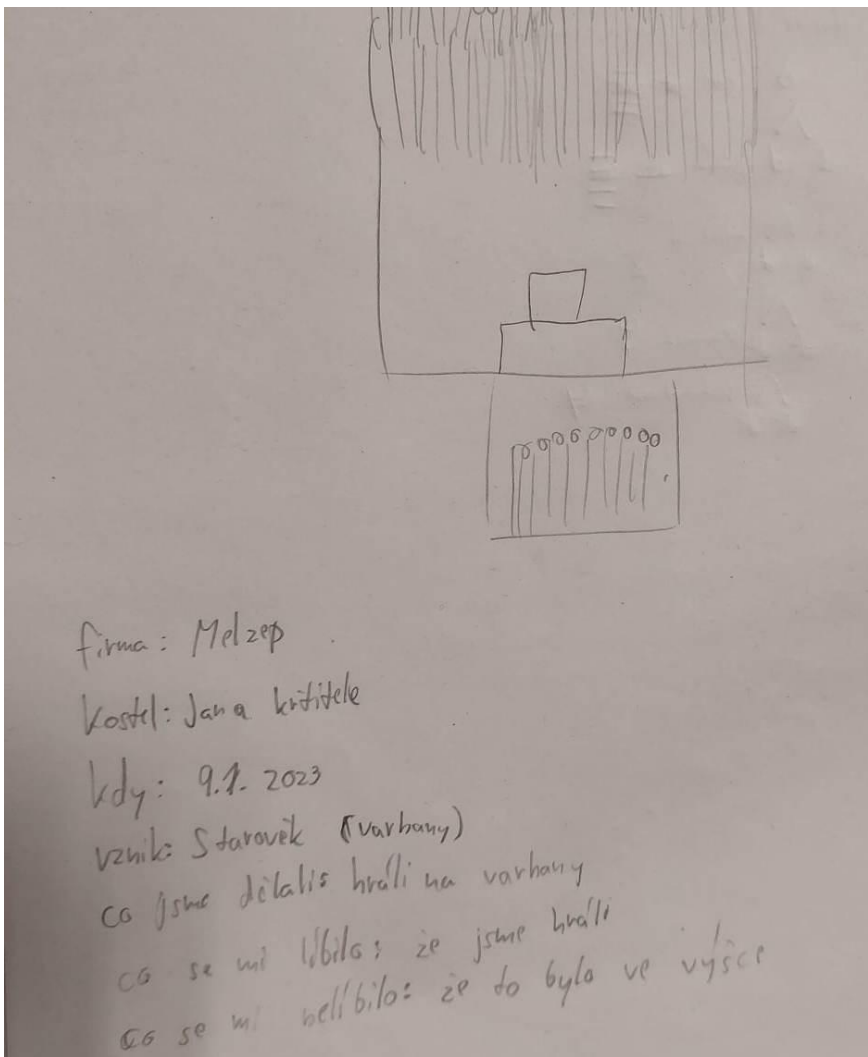 firma: Melzep
kostel: Jana křtitele
kdy: 9.1. 2023
vznik: Starověk (varhany)
co jsme dělali: hráli na varhany
co se mi líbilo: že jsme hráli
co se mi nelíbilo: že to bylo ve výšce